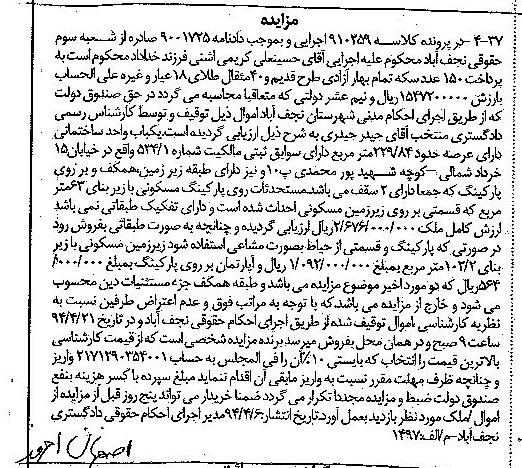 مزایده
۳۷-۴- در پرونده کلاسه ۹۱۰۲۵۹ اجرایی و بموجب دادنامه ۹۰۰۱۷۲۵ صادره از شعبه سوم
حقوقی نجف آباد محکوم علیه اجرایی آقای حسینعلی کریمی اشنی فرزند خداداد محکوم است به
پرداخت ۱۵۰ عدد سکه تمام بهار آزادی طرح قدیم و ۴۰ مثقال طلای ۱۸ عیار و غیره علی الحساب
بارزش ۱۵۴۷۲۰۰۰۰۰ ریال و نیم عشر دولتی که متعاقبا محاسبه می گردد در حق صندوق دولت
که از طریق اجرای احکام مدنی شهرستان نجف آباد اموال ذیل توقیف و توسط کارشناس رسمی
دادگستری منتخب آقای حیدر حیدری به شرح ذیل ارزیابی گردیده است، یکباب واحد ساختمانی
دارای عرصه حدود ۲۲۹/۸۴ متر مربع دارای سوابق ثبتی مالکیت شماره ۵۲۴/۱ واقع در خیابان ۱۵
خرداد شمالی - کوچه شهید پور محمدی پ ۱۰ و نیز دارای طبقه زیر زمین، همکف و بر روی
پارکینگ که جمعا دارای ۲ سقف می باشد. مستحدثات روی پارکینگ مسکونی با زیر بنای ۶۳ متر
مربع که قسمتی بر روی زیرزمین مسکونی احداث شده است و دارای تفکیک طبقاتی نمی باشد
ارزش کامل ملک ۲/۶۷۶/۰۰۰/۰۰۰ ریال ارزیابی گردیده و چنانچه به صورت طبقاتی بفروش رود
در صورتی که پارکینگ و قسمتی از حیاط بصورت مشاعی استفاده شود زیرزمین مسکونی با زیر
بنای ۱۰۲/۲ متر مربع بمبلغ ۱/۰۹۲/۰۰۰/۰۰۰ ریال و آپارتمان بر روی پارکینگ بمبلغ ۰۰۰/۰۰۰/
۵۶۴ ریال که دو مورد اخیر موضوع مزایده می باشد و طبقه همکف جزء مستثنیات دین محسوب
می شود و خارج از مزایده می باشد. که با توجه به مراتب فوق و عدم اعتراض طرفین نسبت به
نظریه کارشناسی اموال توقیف شده از طریق اجرای احکام حقوقی نجف آباد و در تاریخ ۹۴/۴/۲۱
ساعت ۹ صبح و در همان محل بفروش میرسد برنده مزایده شخصی است که از قیمت کارشناسی
بالاترین قیمت را انتخاب که بایستی ۱۰٪ آن را فی المجلس به حساب ۲۱۷۱۲۹۰۳۵۴۰۰۱ واریز
و چنانچه ظرف مهلت مقرر نسبت به واریز مابقی آن اقدام ننماید مبلغ سپرده با کسر هزینه بنفع
صندوق دولت ضبط و مزایده مجددا تکرار می گردد ضمنا خریدار می تواند پنج روز قبل از مزایده از
اموال/ملک مورد نظر بازدید بعمل آورد. تاریخ انتشار: ۹۴/۴/۶ مدیر اجرای احکام حقوقی دادگستری
نجف آباد-م/الف: ۱۴۹۷
اصفهان امروز